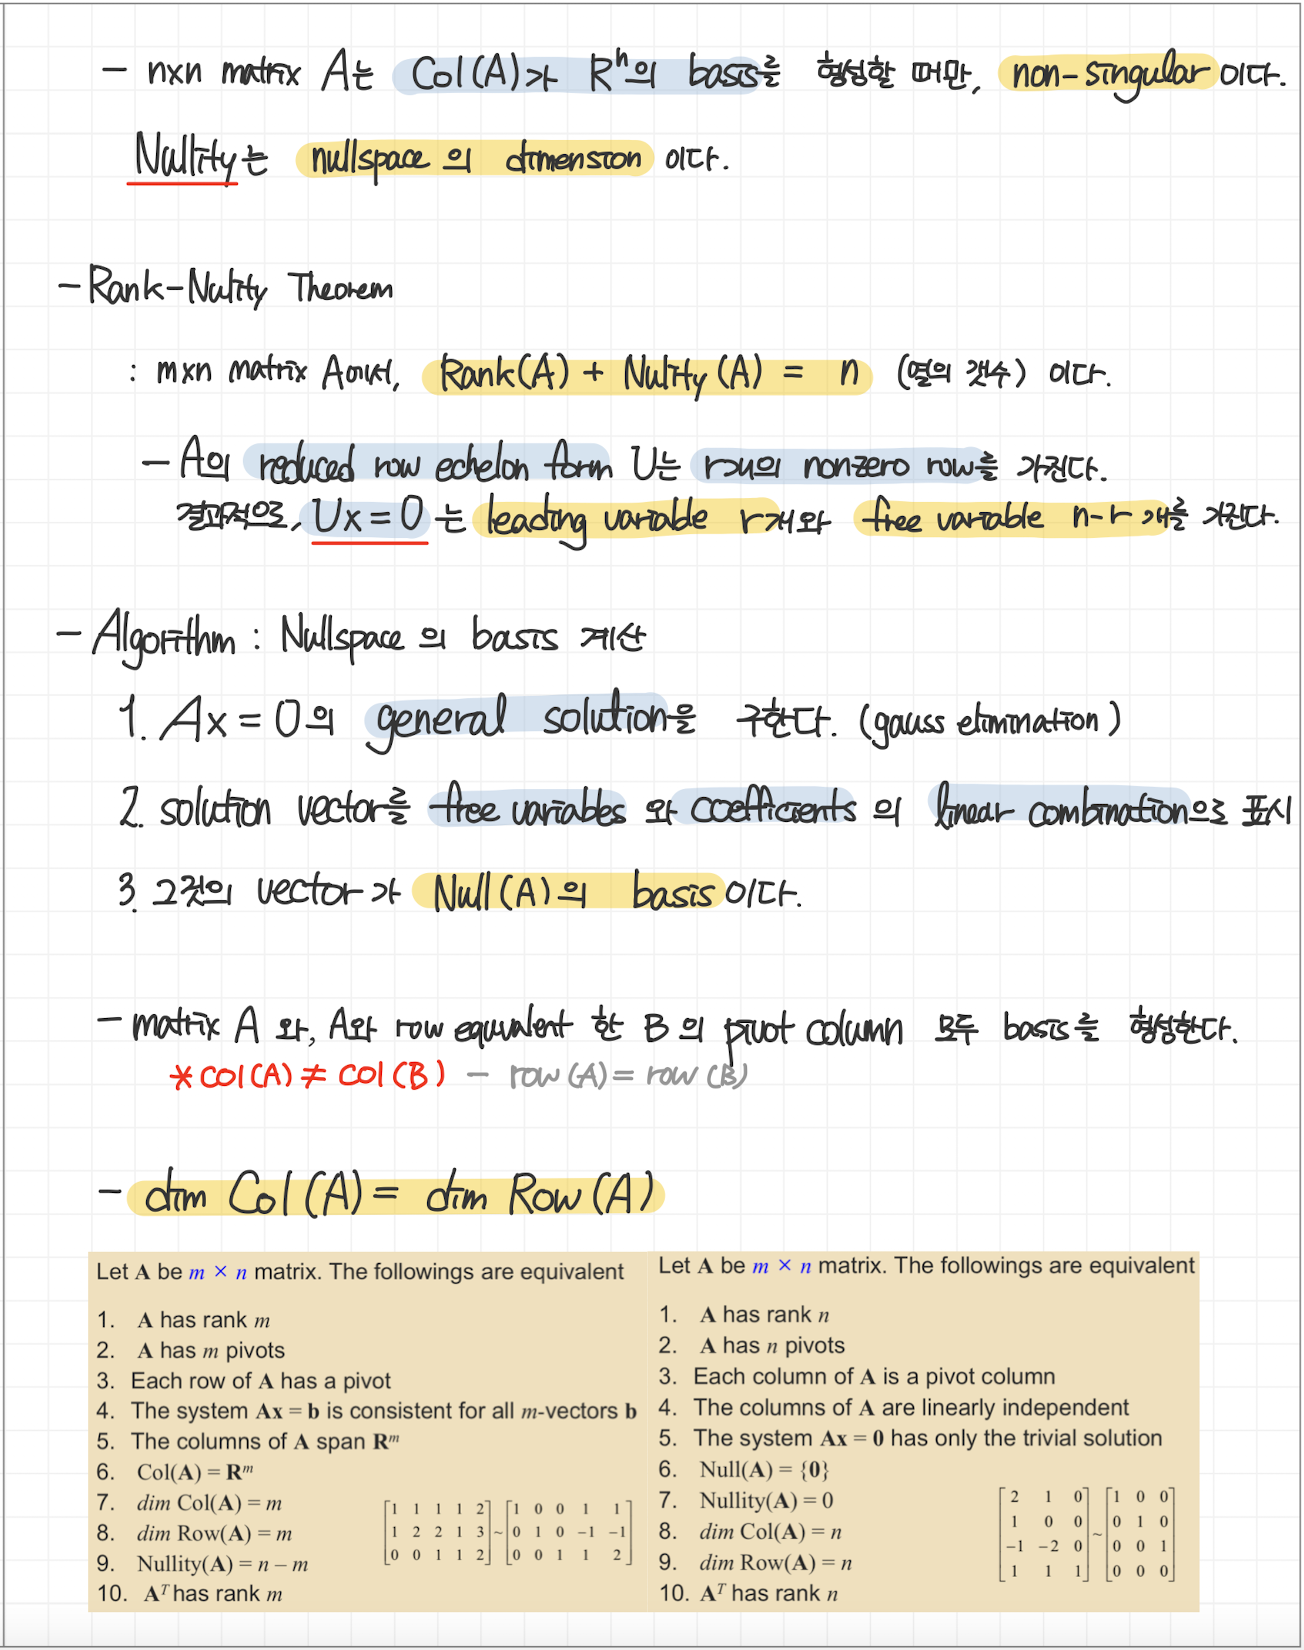 - nxn matrix A는 Col(A)가 Rⁿ의 basis를 형성할 때만, non-singular이다.
Nullity는 nullspace의 dimension 이다.
- Rank-Nulity Theorem
: mxn matrix A에서, Rank(A) + Nulity(A) = n (열의 갯수) 이다.
- A의 reduced row echelon form U는 r개의 nonzero row를 가진다.
결과적으로, Ux=0 는 leading variable r개와 free variable n-r개를 가진다.
- Algorithm : Nullspace의 basis 계산
1. Ax=0의 general solution을 구한다. (gauss elimination)
2. solution vector를 free variables와 coefficients의 linear combination으로 표시
3. 그것의 vector가 Null(A)의 basis이다.
- matrix A 와, A와 row equivalent 한 B의 pivot column 모두 basis를 형성한다.
* col(A) ≠ col(B) - row(A) = row(B)
- dim Col(A) = dim Row(A)
Let A be m × n matrix. The followings are equivalent
1. A has rank m
2. A has m pivots
3. Each row of A has a pivot
4. The system Ax = b is consistent for all m-vectors b
5. The columns of A span Rᵐ
6. Col(A) = Rᵐ
7. dim Col(A) = m
8. dim Row(A) = m
9. Nullity(A) = n – m
10. Aᵀ has rank m
[1 1 1 1 2] [1 0 0 1 1]
[1 2 2 1 3] ~ [0 1 0 -1 -1]
[0 0 1 1 2] [0 0 1 1 2]
Let A be m × n matrix. The followings are equivalent
1. A has rank n
2. A has n pivots
3. Each column of A is a pivot column
4. The columns of A are linearly independent
5. The system Ax = 0 has only the trivial solution
6. Null(A) = {0}
7. Nullity(A) = 0
8. dim Col(A) = n
9. dim Row(A) = n
10. Aᵀ has rank n
[2 1 0] [1 0 0]
[1 0 0] [0 1 0]
[-1 -2 0] ~ [0 0 1]
[1 1 1] [0 0 0]